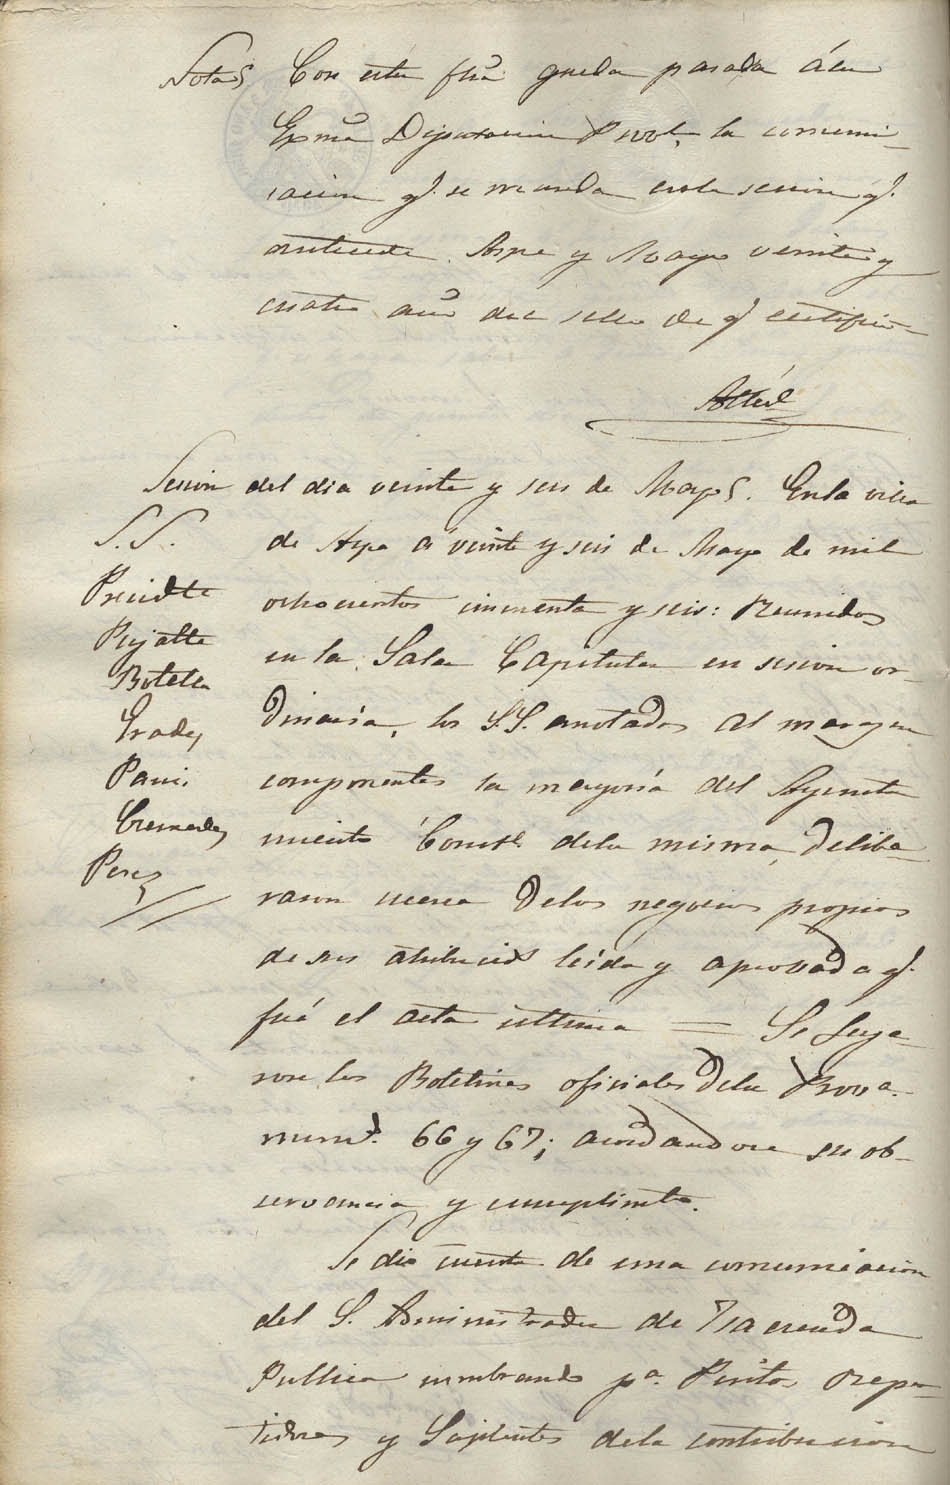 Nota Con esta fha queda pasada á la
Exma Diputacion Provl. la comuni-
cacion q.e se manda en la sesion q.e
antecede. Aspe y Mayo veinte y
cuatro año del sello de q.e certifico
Sesion del dia veinte y seis de Mayo. En la villa
S.S.
Presidte
Pujalte
Botella
Prades
Pavi.
Cremades
Perez
de Aspe á veinte y seis de Mayo de mil
ochocientos cincuenta y seis: Reunidos
en la Sala Capitular en sesion or-
dinaria, los S.S. anotados al margen
componentes la mayoría del Ayunta
miento Constl. de la misma, delibe-
raron acerca de los negocios propios
de sus atribucis leída y aprobada q.e
fué el acta última = Se leye-
ron los Boletines oficiales de la Prova.
nums. 66 y 67; acordandose su ob-
servancia y cumplimto.
Se dió cuenta de una comunicacion
del S. Administrador de Hacienda
Publica nombrando pa. Peritos repar
tidores y Suplentes de la contribucion